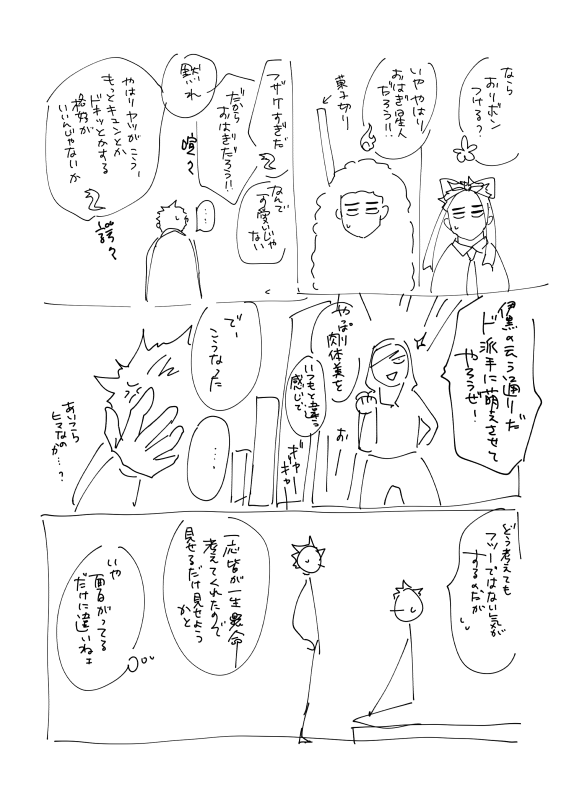 なら
おリボン
つける？
いややはり
おはぎ星人
だろう!!
菓子切り
フザケすぎだ
だから
おはぎだろう!!
黙れ
喧々
なんで
可愛いじゃ
ない
…
やはりヤツがこう、
もっとキュンとか
ドキッとかする
格好が
いいんじゃないか
諤々
伊黒の云う通りだ
ド派手に萌えさせて
やろうぜ！
やっぱり
肉体美を
いつもと違う
感じで
お
ギャー
ギャー
で、
こうなった
…
あいつら
ヒマなのか…？
どう考えても
フツーではない気が
するのだが
一応皆が一生懸命
考えてくれたので
見せるだけ見せよう
かと
いや
面白がってる
だけに違いねェ